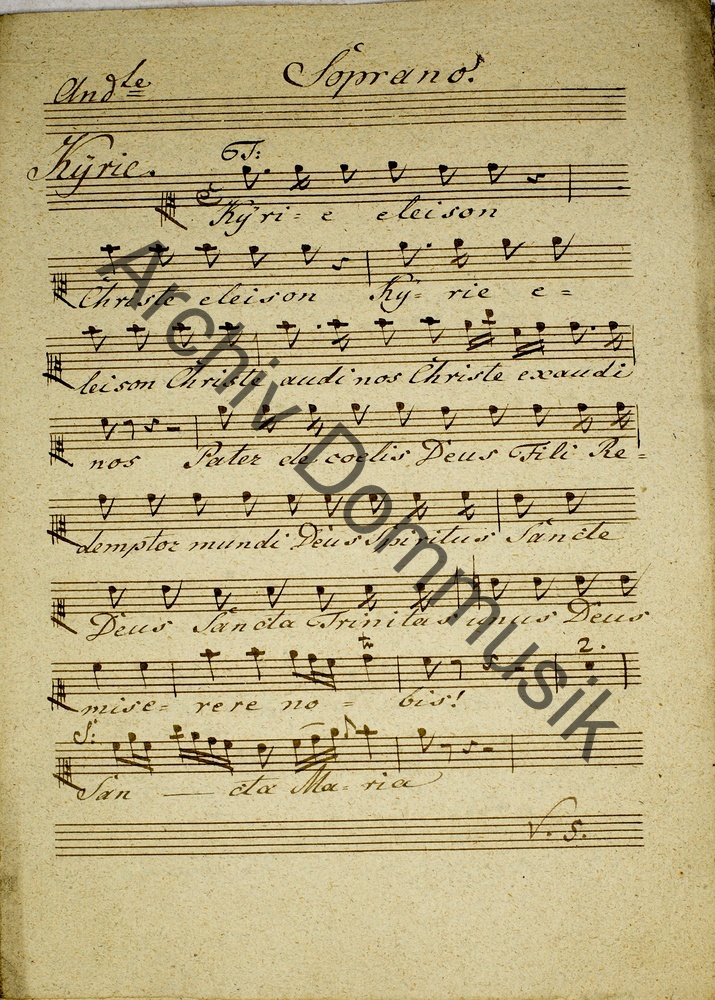 Soprano.
Andte
Kÿrie.
T:
Kÿri= e eleison
Christe eleison Kÿ= rie e=
leison Christe audi nos Christe exaudi
nos Pater de coelis Deus Fili Re=
demptor mundi Deus Spiritus Sancte
Deus Sancta Trinitas unus Deus
2.
mise= rere no = bis!
S:
San — cta Ma= ria
V. S.
Archiv Dommusik